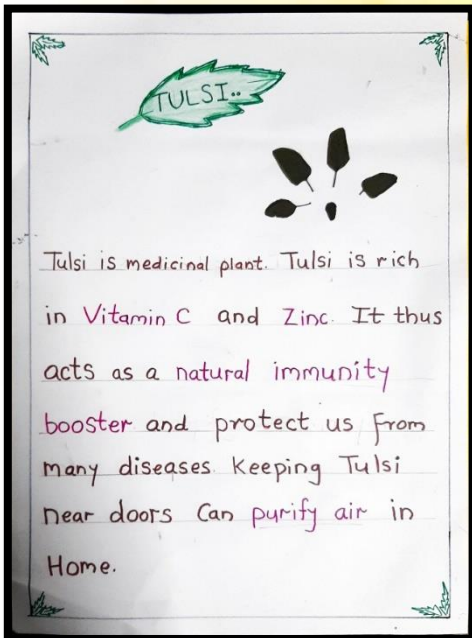 TULSI..
Tulsi is medicinal plant. Tulsi is rich
in Vitamin C and Zinc. It thus
acts as a natural immunity
booster and protect us from
many diseases keeping Tulsi
near doors Can purify air in
Home.